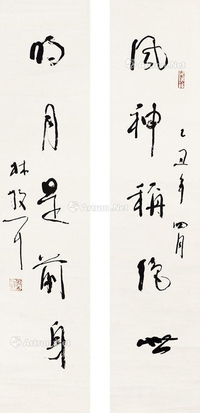 風神稱絕世
乙丑年四月
明月是前身
林散之